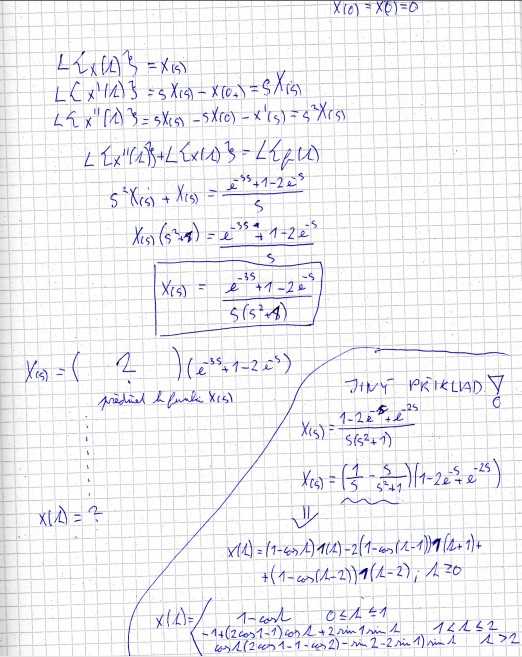 x(0) = x(0) = 0
L{x(t)} = X(s)
L{x'(t)} = sX(s) - x(0+) = sX(s)
L{x''(t)} = sX(s) - sX(0) - x'(s) = s²X(s)
L{x''(t)} + L{x(t)} = L{f(t)
s²X(s) + X(s) = (e^-3s + 1 - 2e^-s) / s
X(s)(s²+1) = (e^-3s + 1 - 2e^-s) / s
X(s) = (e^-3s + 1 - 2e^-s) / s(s²+1)
X(s) = ( ? )(e^-3s + 1 - 2e^-s)
k funkci X(s)
x(t) = ?
JINÝ PŘÍKLAD !
X(s) = (1 - 2e^-s + e^-2s) / s(s²+1)
X(s) = (1/s - s/(s²+1))(1 - 2e^-s + e^-2s)
⇓
x(t) = (1-cos t)1(t) - 2(1-cos(t-1))1(t+1) +
+ (1-cos(t-2))1(t-2), t ≥ 0
x(t) = 1-cos t 0 ≤ t ≤ 1
-1+(2cos1-1)cos t + 2 sin1 sin t 1 ≤ t ≤ 2
cos t(2cos1-1-cos2) - sin2 - 2sin1) sin t t > 2